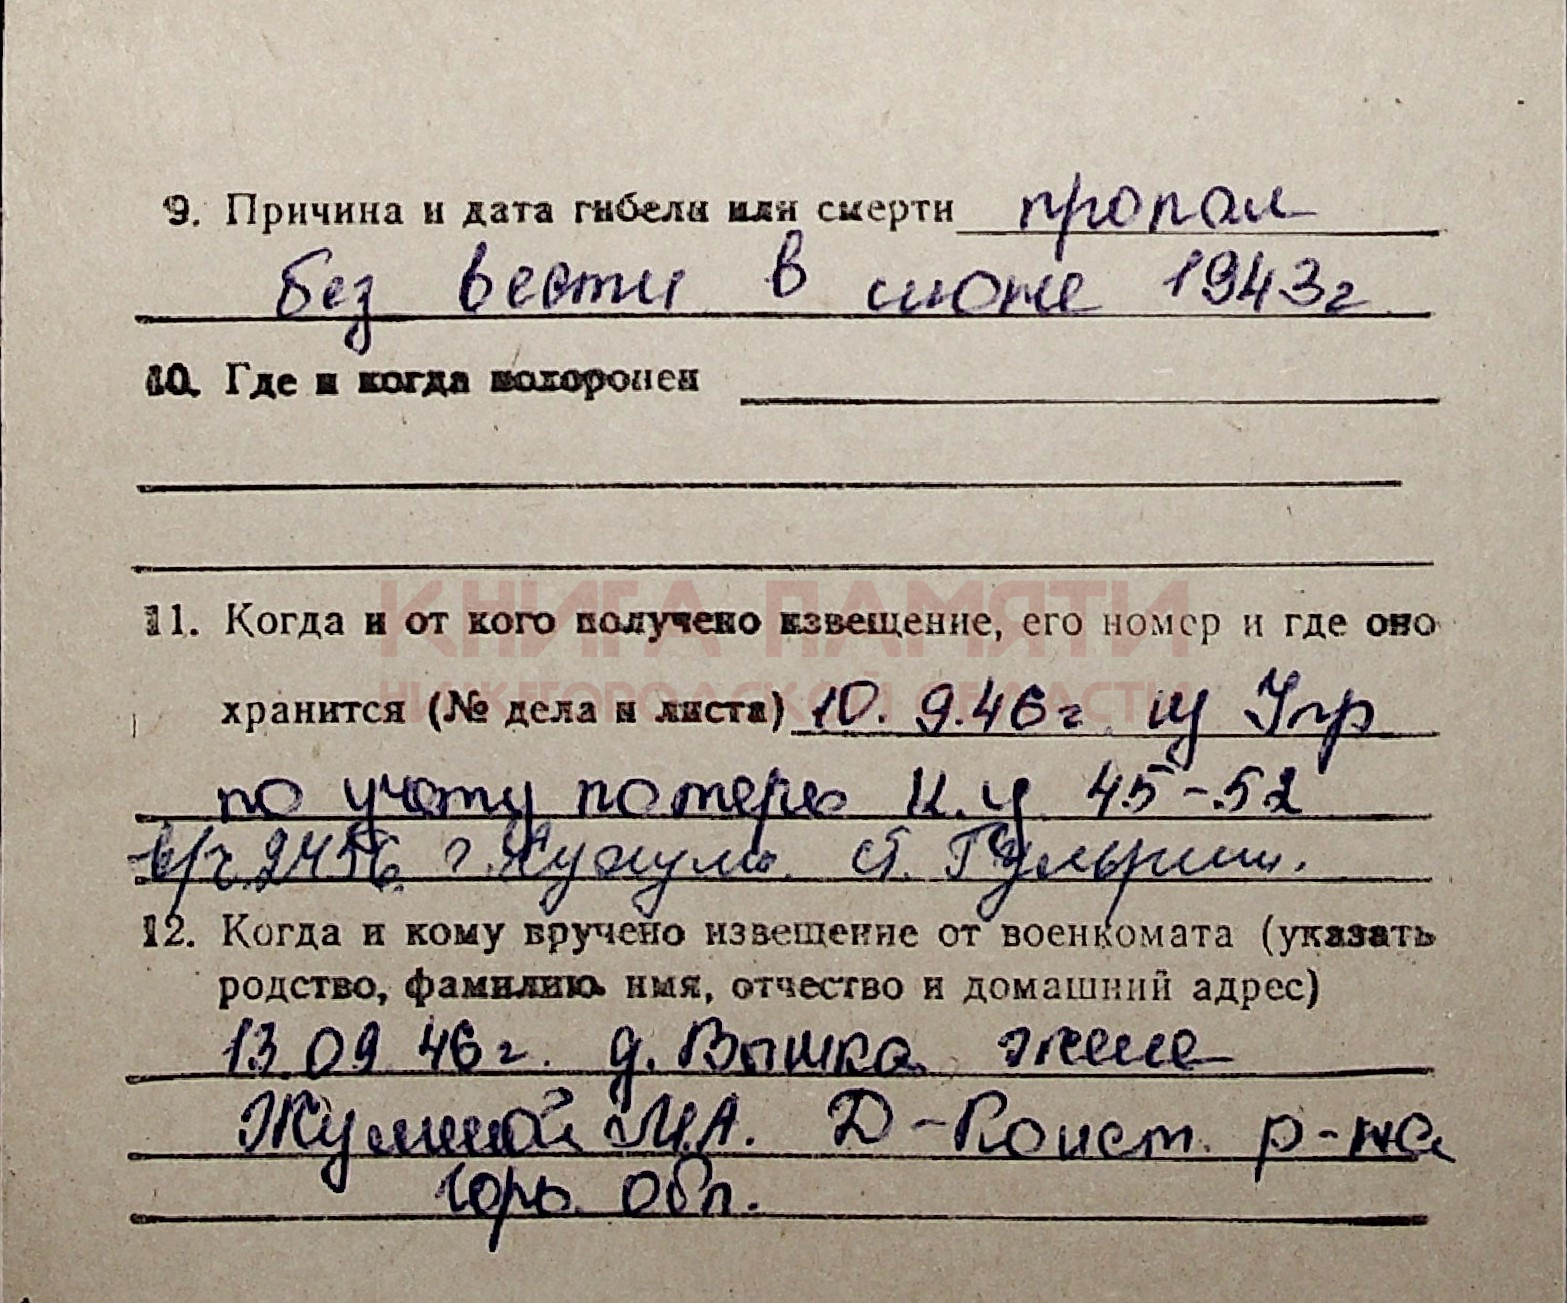 9. Причина и дата гибели или смерти пропал
без вести в июне 1943г
10. Где и когда похоронен
11. Когда и от кого получено извещение, его номер и где оно
КНИГА ПАМЯТИ
НИЖЕГОРОДСКОЙ ОБЛАСТИ
хранится (№ дела и листа) 10.9.46г. из Упр
по учету потерь 45-52
в/ч г.
12. Когда и кому вручено извещение от военкомата (указать
родство, фамилию имя, отчество и домашний адрес)
13 09 46г. д. Вышка жене
М.А. Д-Конст. р-на
Горь. обл.